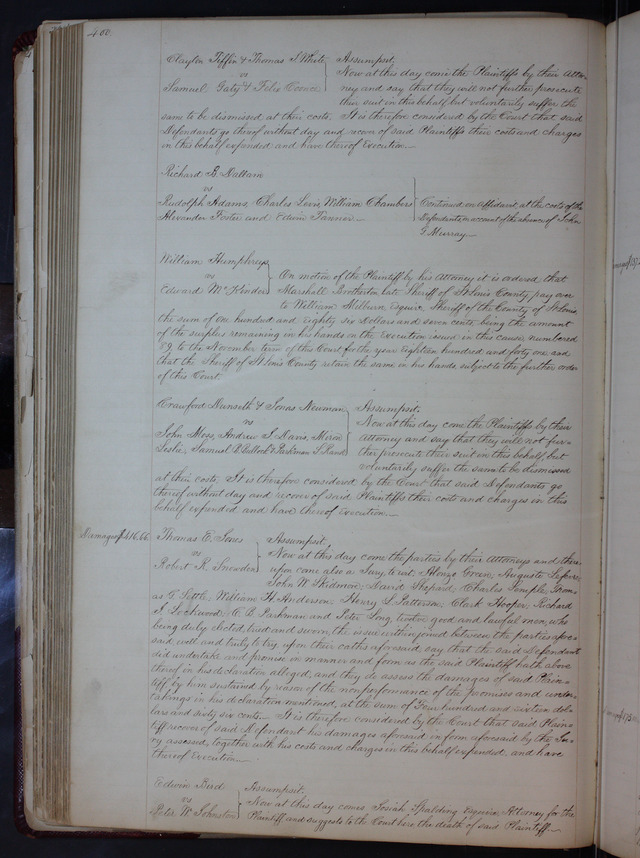 400.
Clayton Tiffin & Thomas S. White } Assumpsit,
vs Now at this day come the Plaintiffs by their Attor-
Samuel Gaty & Felix ney and say that they will not further prosecute
their suit in this behalf but voluntarily suffer the
same to be dismissed at their costs. It is therefore considered by the Court that said
Defendants go thereof without day and recover of said Plaintiffs their costs and charges
in this behalf expended and have thereof Execution.
Richard B. Dallam
vs
Rudolph Adams, Charles Levi, William Chambers } Continued on Affidavit, at the costs of the
Alexander Foster and Edwin Tanner Defendants on account of the absence of John
G. Murray
William Humphreys
vs } On motion of the Plaintiff by his Attorney it is ordered that
Edward McKender Marshall Brotherton late Sheriff of St Louis County, pay over
to William Milburn, Esquire, Sheriff of the County of St Louis,
the sum of one hundred and eighty six Dollars and seven cents, being the amount
of the surplus remaining in his hands on the Execution issued in this cause, numbered
89, to the November term of this Court for the year eighteen hundred and forty one and
that the Sheriff of St Louis County retain the same in his hands, subject to the further order
of this Court.
Crawford Dunseth & Jonas Newman } Assumpsit.
vs Now at this day come the Plaintiffs by their
John Moss, Andrew S. Davis, Miron Attorney and say that they will not fur-
Leslie, Samuel B. Bullock & Parkman S. Rand ther prosecute their suit in this behalf, but
voluntarily suffer the same to be dismissed
at their costs. It is therefore considered by the Court that said Defendants go
thereof without day and recover of said Plaintiffs their costs and charges in this
behalf expended and have thereof Execution.
Damages $416.66 Thomas E. Jones } Assumpsit,
vs Now at this day come the parties by their Attorneys and there-
Robert R. Snowden upon come also a Jury, to wit, Alonzo Green, Auguste Lefevre,
John W. Skidmore, David Shepard, Charles Semple, Thom-
as C. Settle, William H. Anderson, Henry L. Patterson, Clark Hooper, Richard
J. Lockwood, C. B. Parkman and Peter Long, twelve good and lawful men, who
being duly elected, tried and sworn, the issue within joined between the parties afore-
said, well and truly to try upon their oaths aforesaid, say that the said Defendant
did undertake and promise in manner and form as the said Plaintiff hath above
thereof in his declaration alleged, and they do assess the damages of said Plain-
tiff, by him sustained by reason of the nonperformance of the promises and under-
takings in his declaration mentioned, at the sum of Four hundred and sixteen dol-
lars and sixty six cents. It is therefore considered by the Court that said Plain-
tiff recover of said Defendant his damages aforesaid in form aforesaid by the Ju-
ry assessed, together with his costs and charges in this behalf expended, and have
thereof Execution.
Edwin Bird } Assumpsit,
vs Now at this day comes Josiah Spalding Esquire, Attorney for the
Peter W. Johnston Plaintiff and suggests to the Court here the death of said Plaintiff.